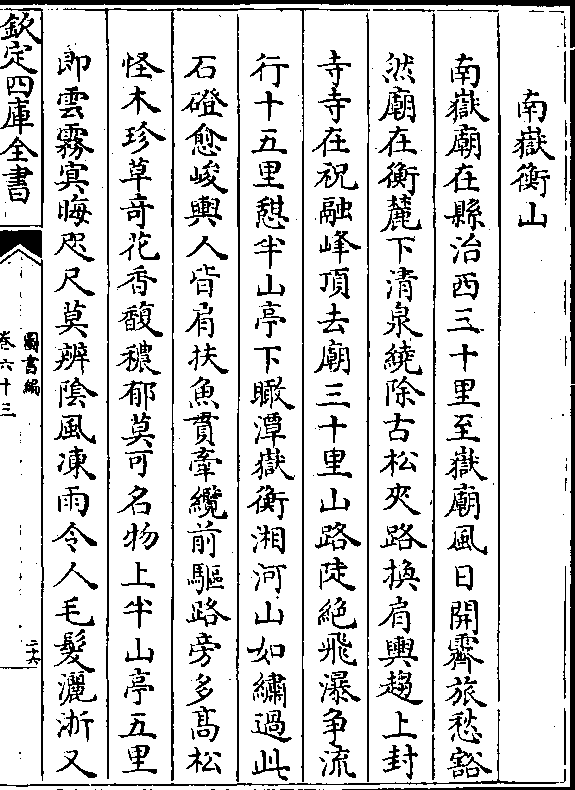 南嶽衡山
南嶽廟在縣治西三十里至嶽廟風日開霽旅愁豁
然廟在衡麓下清泉繞除古松夾路換肩輿趨上封
寺寺在祝融峰頂去廟三十里山路陡絶飛瀑争流
行十五里憇半山亭下瞰潭嶽衡湘河山如繡過此
石磴愈峻輿人皆肩扶魚貫牽纜前驅路旁多髙松
怪木珍草竒花香馥穠郁莫可名物上半山亭五里
即雲霧㝠晦咫尺莫辨隂風凍雨令人毛髮灑淅又
欽定四庫全書
圖書編
卷六十三
二十六